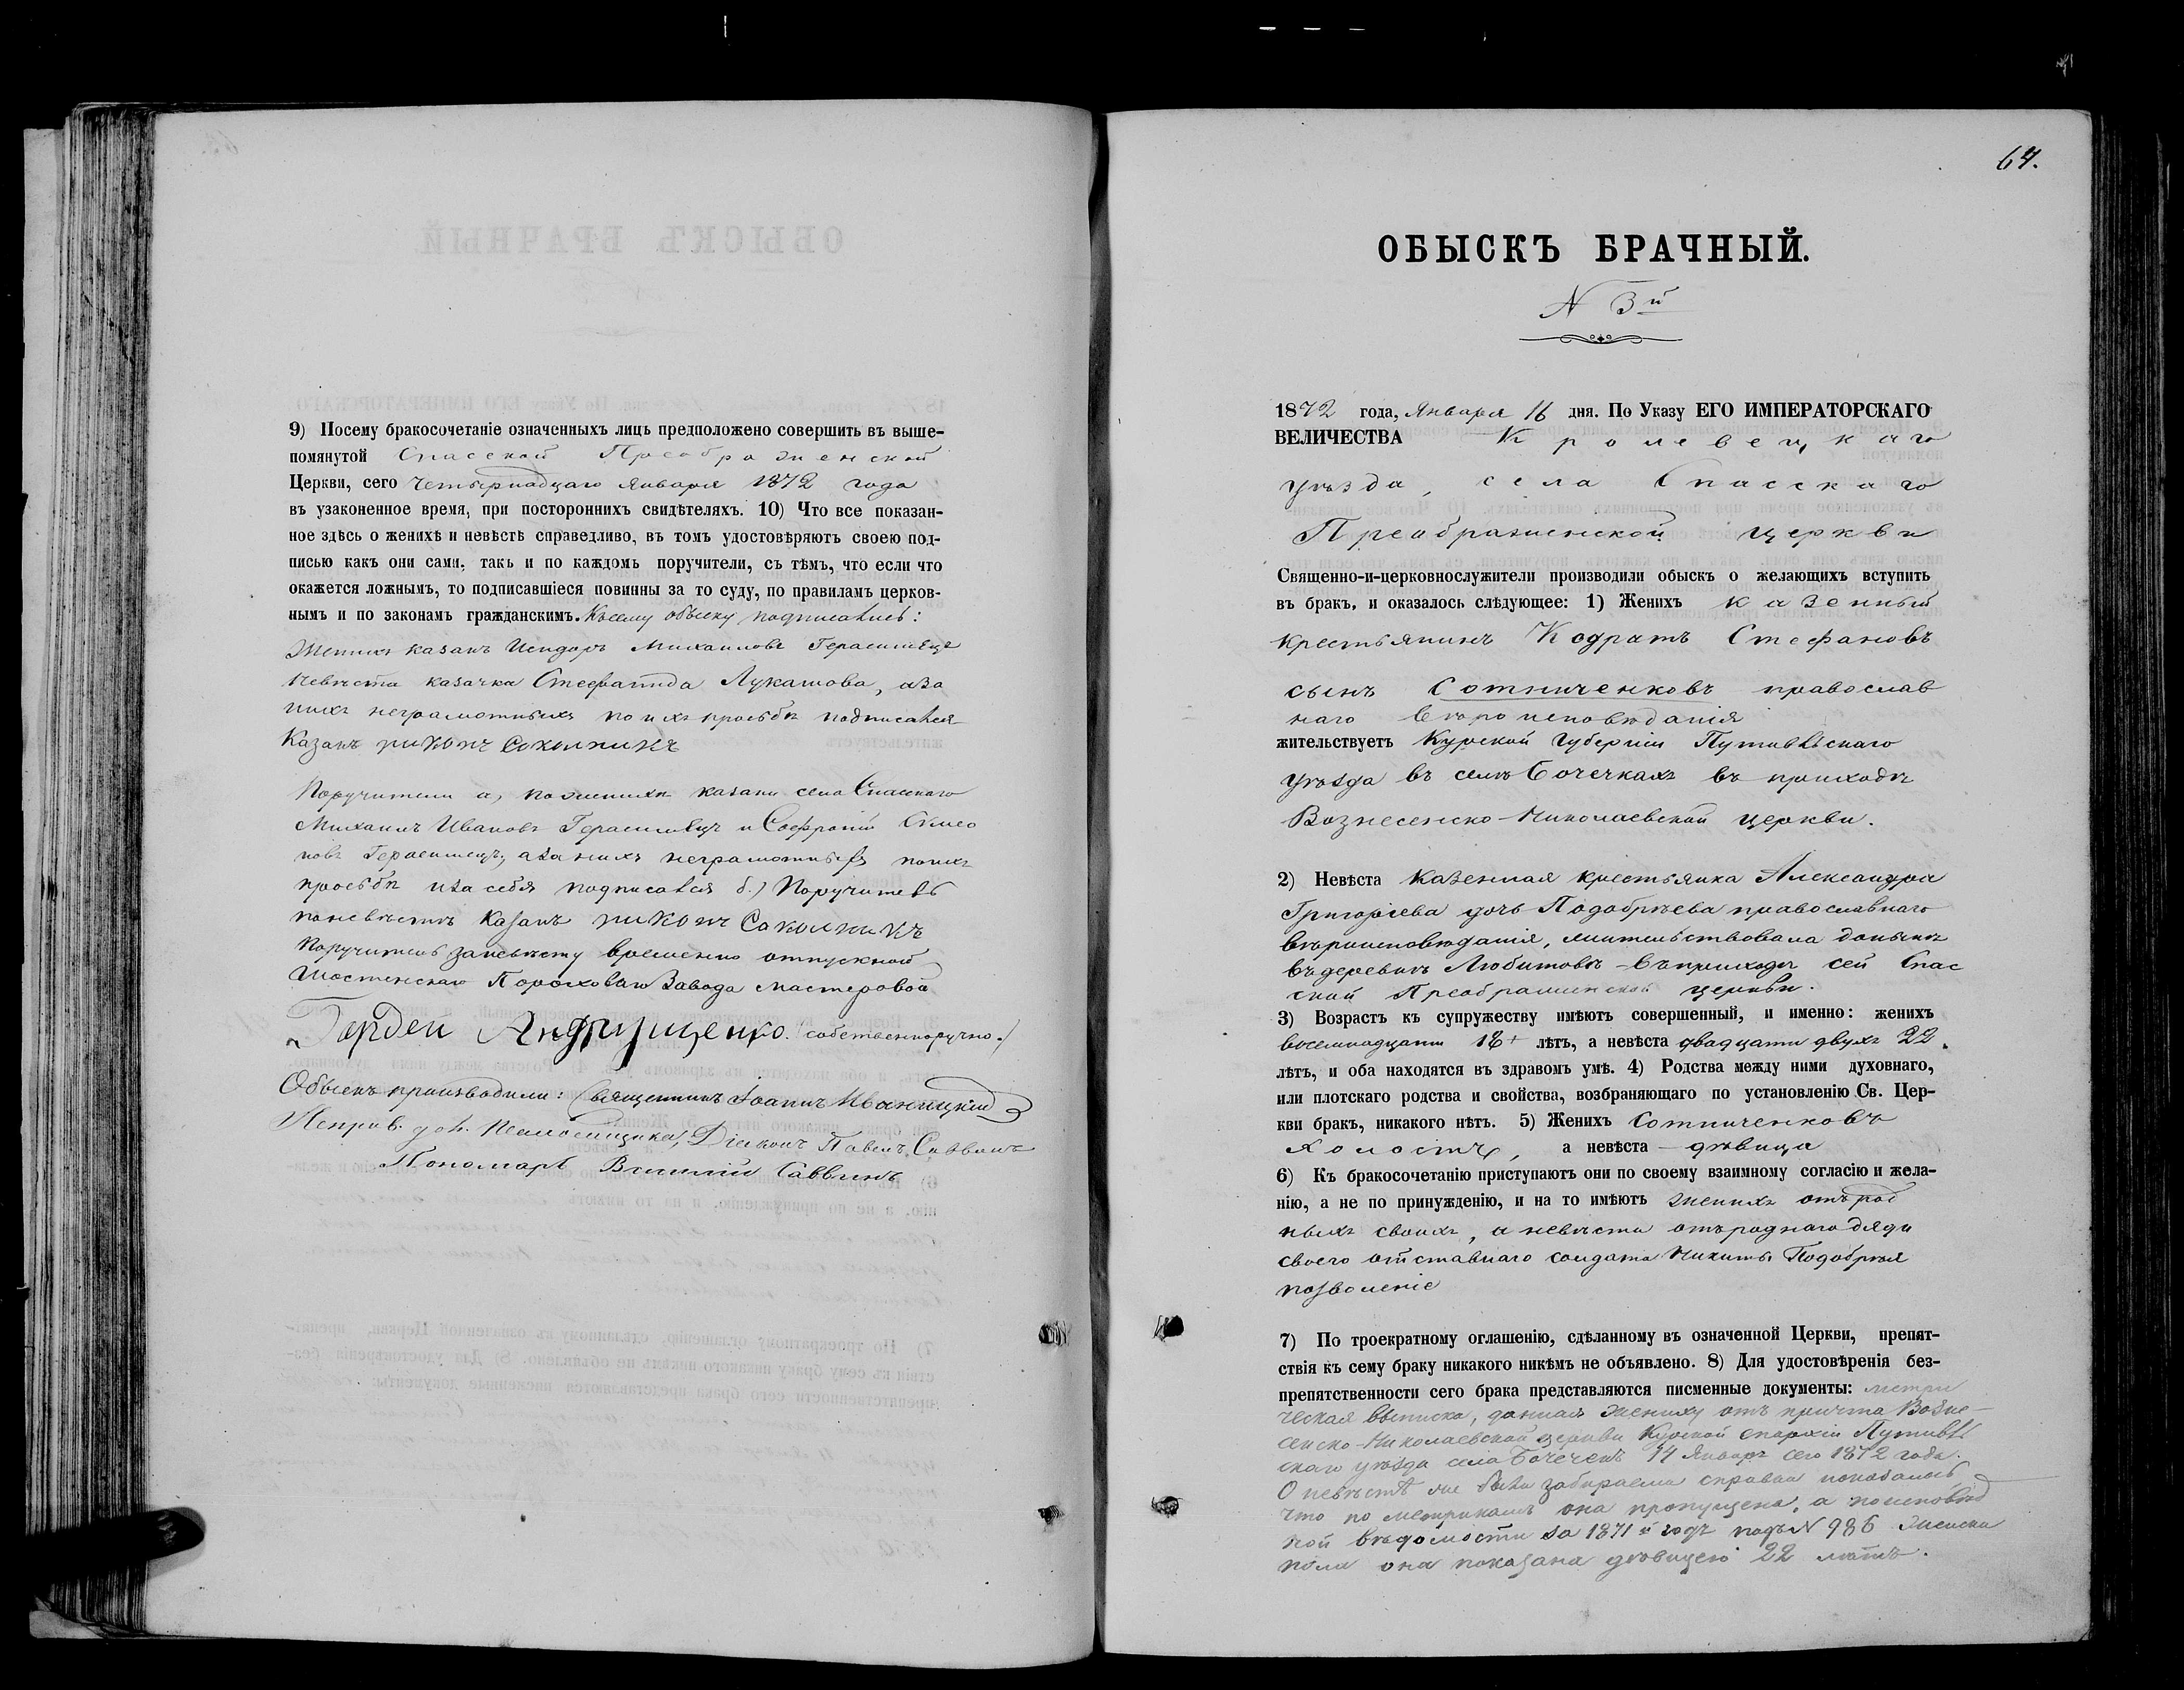 9) Посему бракосочетаніе означенныхъ лицъ предположено совершить въ выше-
помянутой Спасской Преображенской
Церкви, сего Четырнадцаго Января 1872 года
въ узаконенное время, при постороннихъ свидѣтеляхъ. 10) Что все показан-
ное здѣсь о женихѣ и невѣстѣ справедливо, въ томъ удостовѣряютъ своею под-
писью какъ они сами, такъ и по каждомъ поручители, съ тѣмъ, что если что
окажется ложнымъ, то подписавшіеся повинны за то суду, по правиламъ церков-
нымъ и по законамъ гражданскимъ. Къ сему обыску подписались:
Женихъ казакъ Исидоръ Михаиловъ Герасимецъ
Невѣста казачка Стефанида Лукашова, а за
нихъ неграмотныхъ по ихъ просьбѣ подписался
Казакъ
Поручители а, по женихѣ казаки села Спасскаго
Михаилъ Ивановъ Герасимецъ и Софроній Симео
новъ Герасимецъ, а за нихъ неграмотныхъ по ихъ
просьбѣ и за себя подписался б.) Поручитель
по невѣстѣ Казакъ
Поручитель за невѣсту временно отпускной
Шостенскаго Пороховаго Завода мастеровой
Гордей Андрущенко. (собственноручно.)
Обыскъ производили: Священникъ Іоаннъ Иваницкій
Діаконъ Павелъ Саввинъ
Пономарь Василій Саввинъ
64.
ОБЫСКЪ БРАЧНЫЙ.
N 3й
1872 года, Января 16 дня. По Указу ЕГО ИМПЕРАТОРСКАГО
ВЕЛИЧЕСТВА Кролевецкаго
уѣзда, села Спасскаго
Преображенской церкви
Священно-и-церковнослужители производили обыскъ о желающихъ вступить
въ бракъ, и оказалось слѣдующее: 1) Женихъ казенный
крестьянинъ Кодратъ Стефановъ
сынъ Сотниченковъ православ
наго вѣроисповѣданія
жительствуетъ Курской Губерніи Путивльскаго
уѣзда въ селѣ Бочечкахъ въ приходѣ
Вознесенско-Николаевской церкви.
2) Невѣста Казенная крестьянка Александра
Григоріева дочь Подобрѣева православнаго
вѣроисповѣданія, жительствовала донынѣ
въ деревнѣ Любитовѣ въ приходѣ сей Спас
ской Преображенской церкви.
3) Возрастъ къ супружеству имѣютъ совершенный, и именно: женихъ
восемнадцати 18 лѣтъ, а невѣста двадцати двухъ 22
лѣтъ, и оба находятся въ здравомъ умѣ. 4) Родства между ними духовнаго,
или плотскаго родства и свойства, возбраняющаго по установленію Св. Цер-
кви бракъ, никакого нѣтъ. 5) Женихъ Сотниченковъ
холостъ, а невѣста – дѣвица
6) Къ бракосочетанію приступаютъ они по своему взаимному согласію и жела-
нію, а не по принужденію, и на то имѣютъ женихъ отъ род
ныхъ своихъ, а невѣста отъ роднаго дяди
своего отставнаго солдата Никиты Подобрѣя
позволеніе
7) По троекратному оглашенію, сдѣланному въ означенной Церкви, препят-
ствія къ сему браку никакого никѣмъ не объявлено. 8) Для удостовѣренія без-
препятственности сего брака представляются писменные документы: метри
ческая выписка, данная жениху отъ причта Возне-
сенско-Николаевской церкви Курской епархіи Путивль
скаго уѣзда села Бочечекъ 14 Января сего 1872 года.
О невѣстѣ же были забираемы справки показалось
что по метрикамъ она пропущена, а по исповѣд
ной вѣдомости за 1871й годъ подъ N 986 женска
пола она показана дѣвицею 22 лѣтъ.